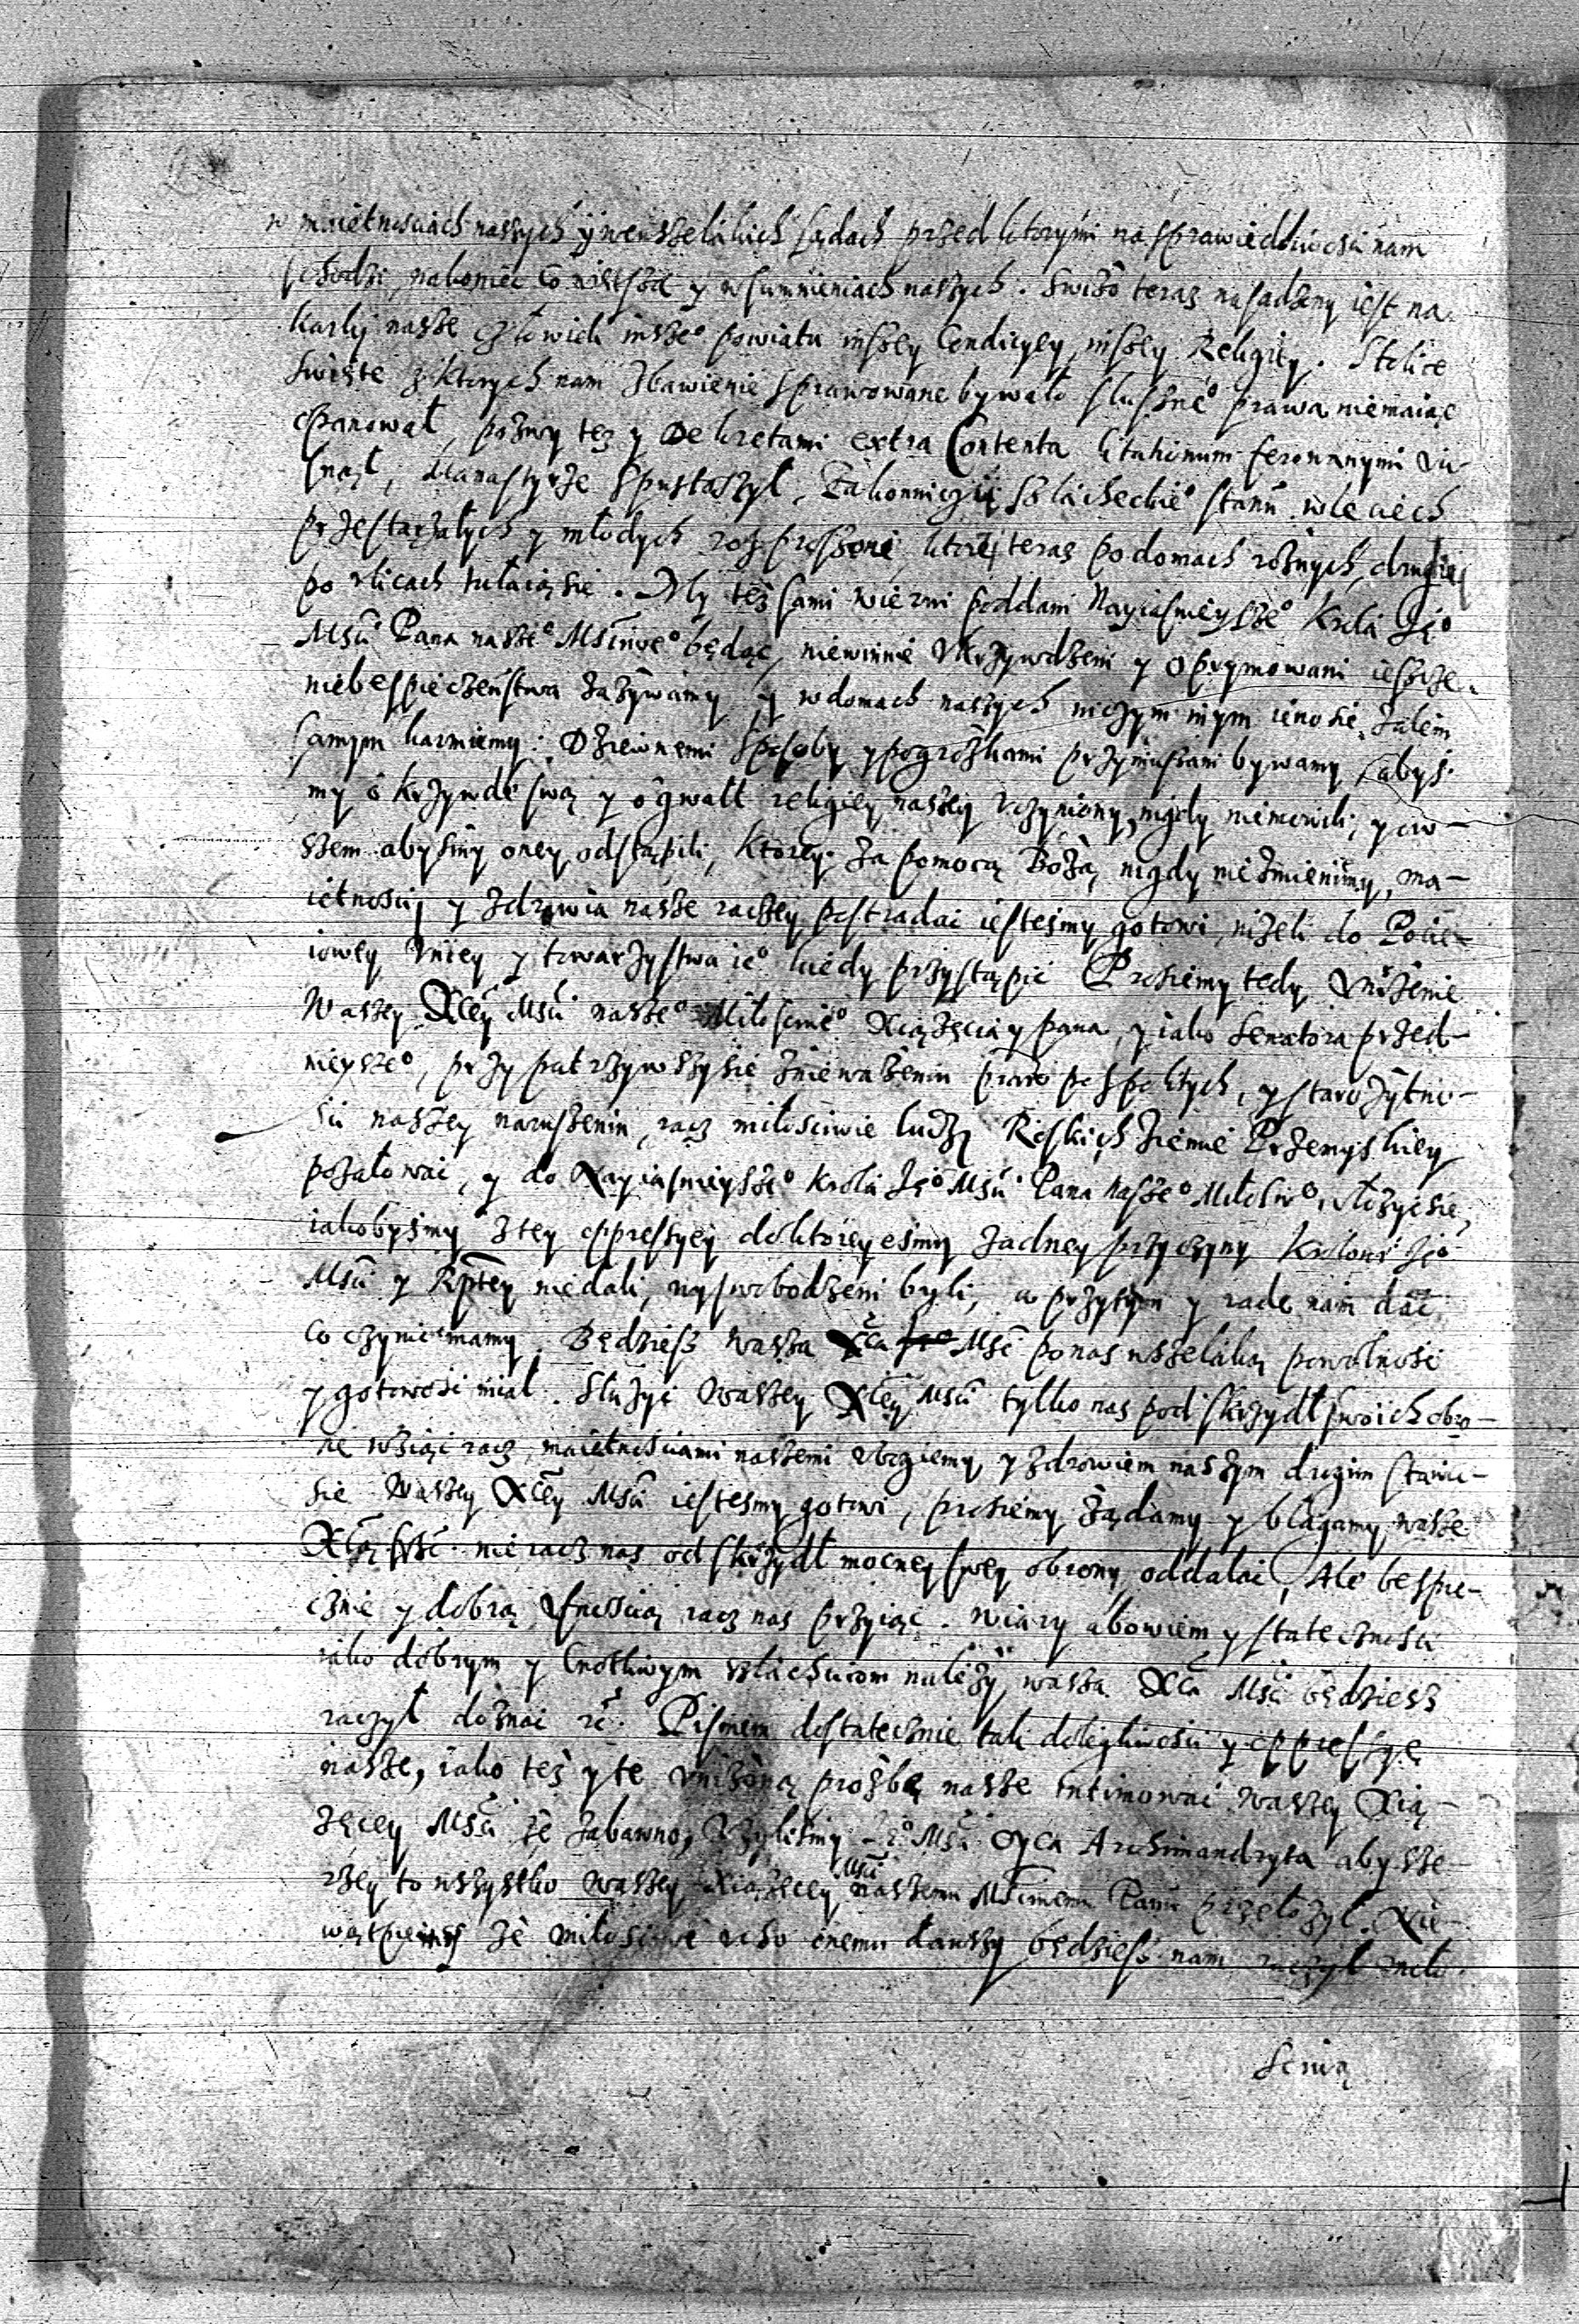 w maiętnosciach naszych y wewszelakich sądach przed ktorymi nasprawiedliwosci nam
schodzi, nakoniec co więtsza y w sumnieniach naszych. Swiżo teraz nasadzony iest na
karky nasze człowiek insze° powiatu inszey Condicyey, inszey Religiey. Stolice
Swięte z ktorych nam zbawienie sprawowane bywało słuszne° prawa niemaiąc
opanował, pozwy tez y Dekretami extra Contenta
snął, Manastyrze Spustoszył, Zakonniczÿ szlacheckie° stanu wleciech
przestarzałych y młodych rozproszone, ktorzÿ teraz podomach roznych, drugieÿ
po vlicach tułaią sie. My też sami wierni poddani Nayiasnieysze° Krola Je°
Msci Pana nasze° Mscinwe° będąc, niewinnie vkrzywdzeni y opprymowani ieszcze
niebespieczeństwa zażywamy y wdomach naszych niczym inym ieno sie żalem
samym karmiemy: Dziewnemi sposoby y pogrożkami przymuszani bywamy abys-
my o krzywdę swą y o gwałt religiey naszey vczyniony, nigdy niemowili, y ow-
szem abysmy oney odstąpili, Ktorey za pomocą Bożą nigdy niezmienimy, ma-
iętnosci y zdrowia nasze raczey postradać iestesmy gotowi, niżeli do Pocie-
iowey vniey y towarzystwa ie° kiedy przystąpić Prosiemy tedy vniżenie
Waszey Xcey Msci nasze° Miłoscine° Xiążęcia y pana, y iako Senatora przed-
nieysze°, przypatrzywszysie znieważeniu praw pospolitych, y starożytno-
sci naszey naruszeniu, racz miłosciwie ludzi Ruskich ziemie Przemyskiey
pożałować, y do Nayiasnieysze° Krola Je° Msci Pana Nasze° Miłosiwe°, włożyć sie,
iakobysmy z tey oppressyey doktoreyesmy żadney przyczyny Krolowi Je°
Msci y Rptey niedali, wyswobodzeni byli, a przytym y radę nam dać
co czynić mamy. Będziesz Wasza Xca Msć ponas wszelaką powolnosć
y gotowosć miał. Służyć Waszey Xcey Msci tylko nas pod skrzydł swoich obro-
nę wziąć racz, maiętnosciami naszemi vbogiemy y zdrowiem naszym drugim stawić
sie Waszey Xcey Msci iestesmy gotowi, prosiemy żądamy y błagamy wasze
Xcą Msć. nieracz nas od skrzydł mocney swey obrony oddalać, Ale bespie-
cznie y dobrą vfnoscią racz nas przyiąć. Wiary abowiem y statecznosci
iako dobrym y cnotliwym szlachcicom należy, wasza Xca Msć będziesz
raczył doznać rc. Pismem dostatecznie tak dolegliwosci y oppressyę
nasze, iako też y tę vniżoną prożbę nasze intimować Waszey Xią-
żęcey Msci że zabawno, vżylismy Je° Msci Oyca Archimandryta aby sze-
rzey to wszystko Waszey Xiążęcey Msci naszemu Mscinemu Panu przełożył. Nie
wątpiemy że miłosciwe vcho onemu dawszy będziesz nam raczył miło
sciwą